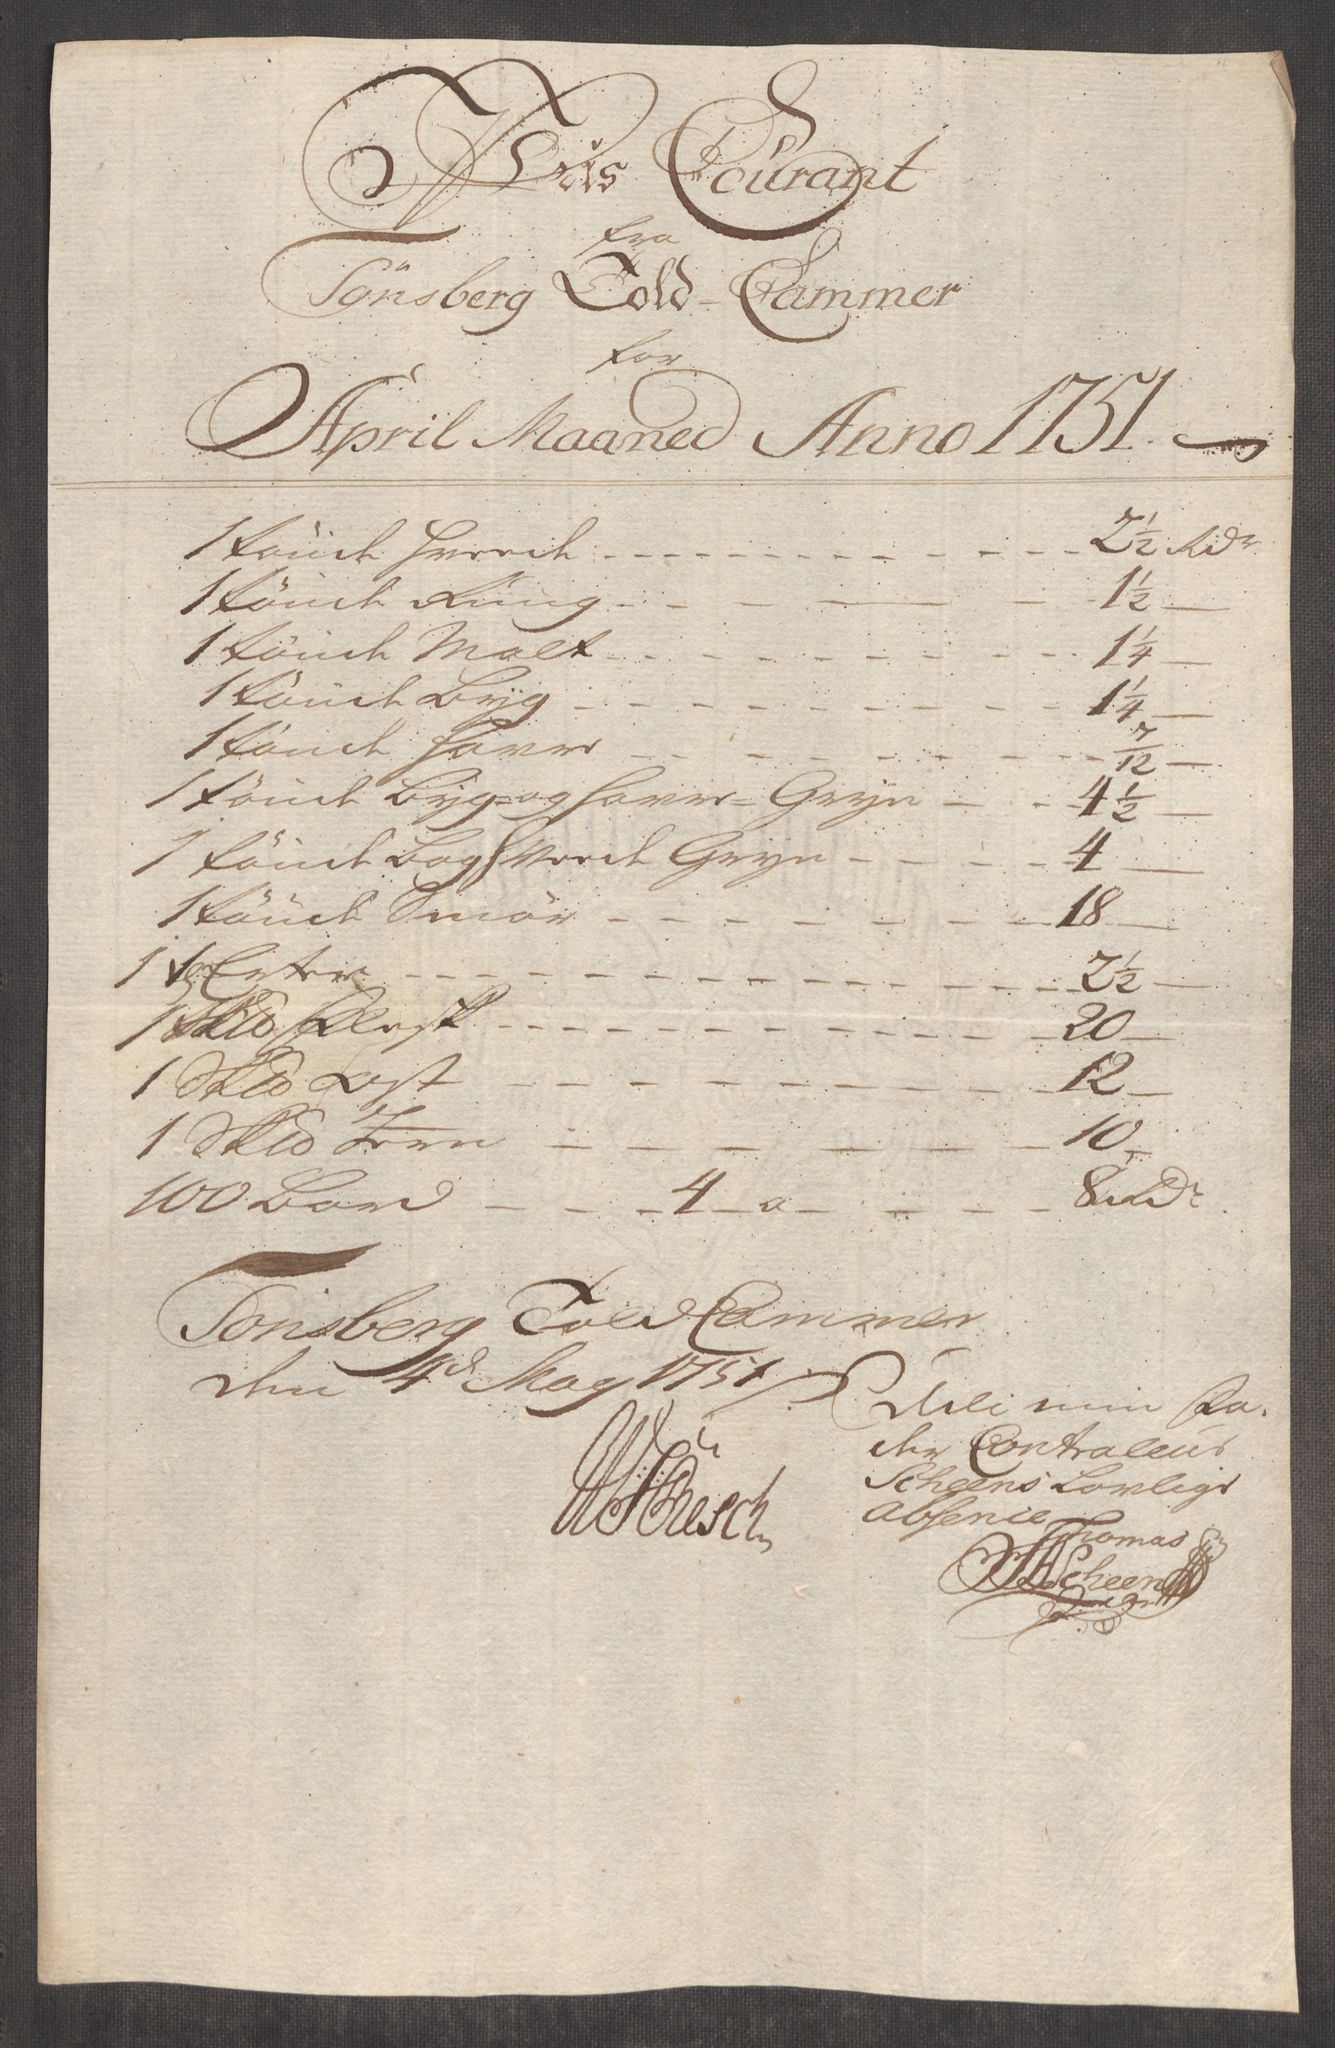 Priis Courant
fra
Tönsberg Told-Cammer
for
April Maaned Anno 1751.
1 tönde Hvede 2 1/2 Rdr
1 tönde Rug 1 1/2
1 tönde Malt 1 1/4
1 tönde Byg 1 1/4
1 tönde Havre 7/12
1 tönde Byg- og Havre-Gryn 4 1/2
1 tönde Boghvede Gryn 4
1 tönde Smör 18
1 tde Erter 2 1/2
1 Skd Flesk 20
1 Skd Ost 12
1 Skd Jern 10
100 Bord 4 a 8 Rdr
Tönsberg Told Cammer
den 4d May 1751
I min Fa-
der Contraleur
Scheens Lovlige
absence
Thomas
Scheen